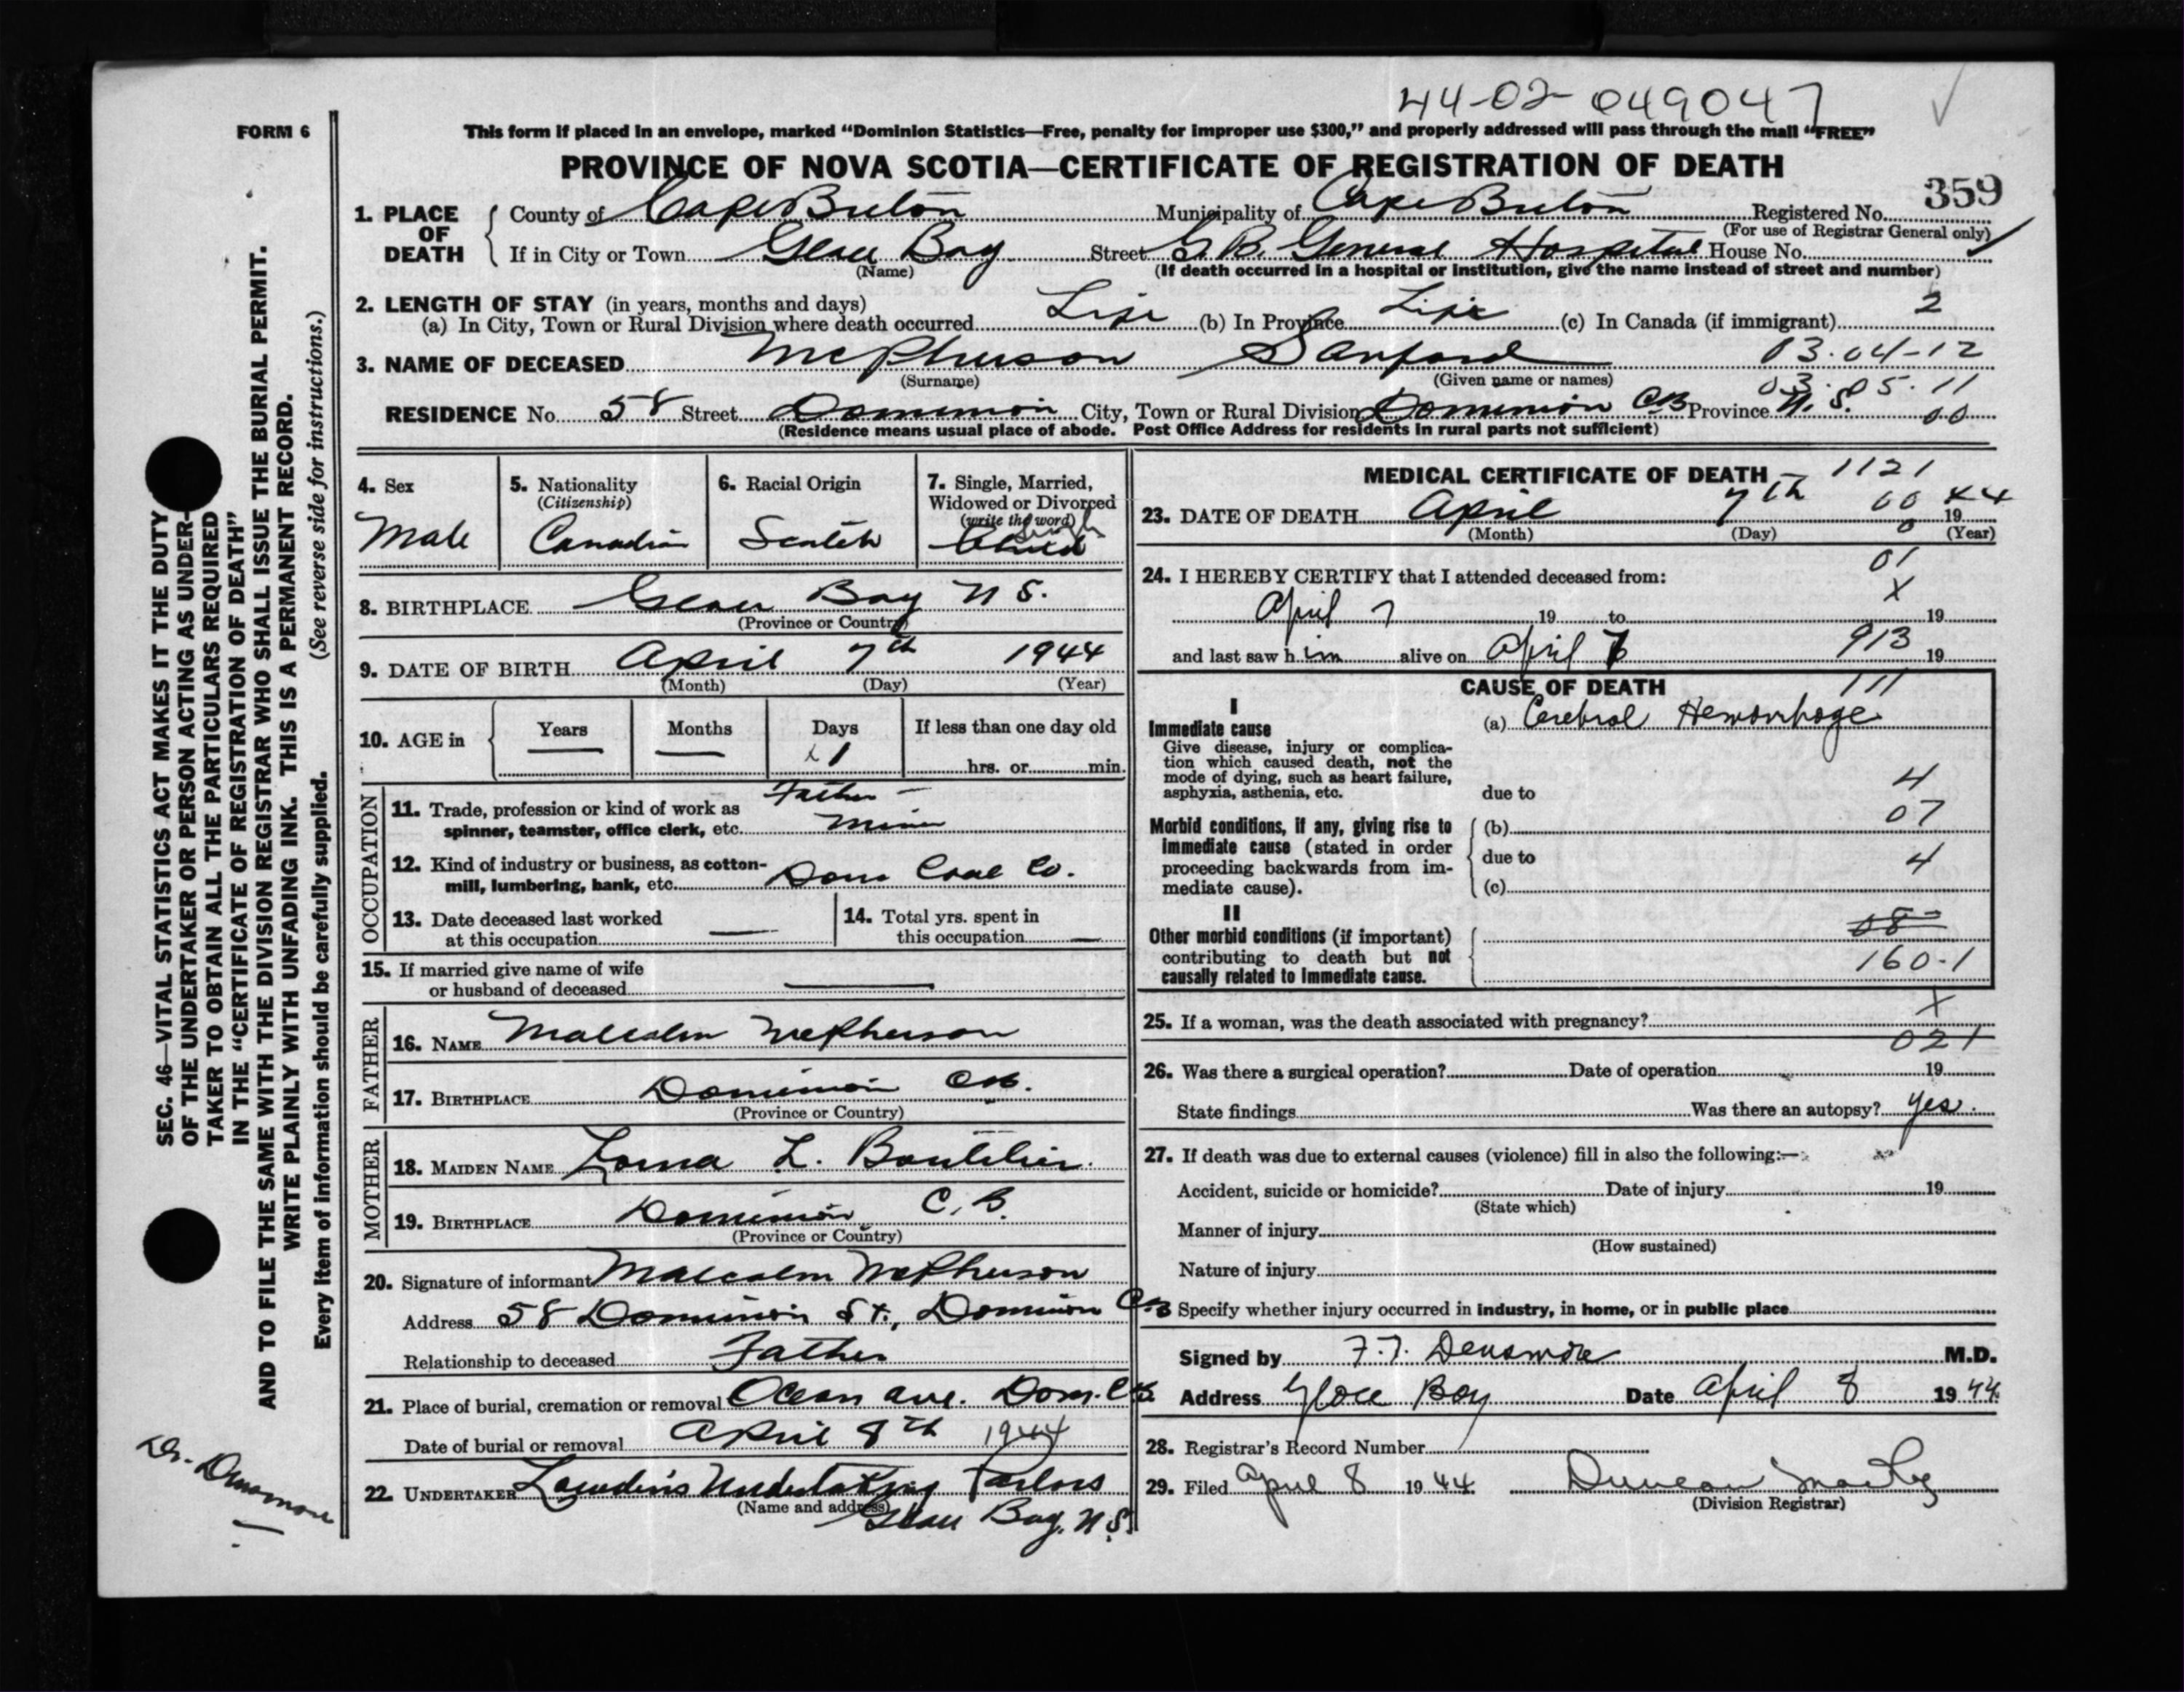 44-02-049047
FORM 6
This form if placed in an envelope, marked “Dominion Statistics—Free, penalty for improper use $300,” and properly addressed will pass through the mail “FREE”
PROVINCE OF NOVA SCOTIA—CERTIFICATE OF REGISTRATION OF DEATH
359
1. PLACE OF DEATH County of Cape Breton Municipality of Cape Breton Registered No.
(For use of Registrar General only)
If in City or Town Glace Bay Street G.B. General Hospital House No.
(Name) (If death occurred in a hospital or institution, give the name instead of street and number)
2. LENGTH OF STAY (in years, months and days) 2
(a) In City, Town or Rural Division where death occurred Life (b) In Province Life (c) In Canada (if immigrant)
3. NAME OF DECEASED McPherson Sanford 03.04-12
(Surname) (Given name or names) 03.05.11
RESIDENCE No. 58 Street Dominion City, Town or Rural Division Dominion CB Province N.S. 00
(Residence means usual place of abode. Post Office Address for residents in rural parts not sufficient)
4. Sex Male
5. Nationality (Citizenship) Canadian
6. Racial Origin Scotch
7. Single, Married, Widowed or Divorced (write the word) Single Child
8. BIRTHPLACE Glace Bay N S.
(Province or Country)
9. DATE OF BIRTH April 7th 1944
(Month) (Day) (Year)
10. AGE in Years — Months — Days 1 If less than one day old
hrs. or min.
OCCUPATION
11. Trade, profession or kind of work as spinner, teamster, office clerk, etc. Father – Miner
12. Kind of industry or business, as cotton-mill, lumbering, bank, etc. Dom Coal Co.
13. Date deceased last worked at this occupation —
14. Total yrs. spent in this occupation —
15. If married give name of wife or husband of deceased —
FATHER
16. NAME Malcolm McPherson
17. BIRTHPLACE Dominion CB.
(Province or Country)
MOTHER
18. MAIDEN NAME Lorna L. Boutilier.
19. BIRTHPLACE Dominion C.B.
(Province or Country)
20. Signature of informant Malcolm McPherson
Address 58 Dominion St., Dominion CB
Relationship to deceased Father
21. Place of burial, cremation or removal Ocean Ave. Dom. CB
Date of burial or removal April 8th 1944
22. UNDERTAKER Undertaking Parlors
(Name and address) Glace Bay, N.S.
MEDICAL CERTIFICATE OF DEATH – 1121
23. DATE OF DEATH April 7th 00 1944
(Month) (Day) 0 (Year)
24. I HEREBY CERTIFY that I attended deceased from: 01
April 7 19 to X 19
and last saw him alive on April 7 913 19
CAUSE OF DEATH 111
I
Immediate cause (a) Cerebral Hemorrhage
Give disease, injury or complication which caused death, not the mode of dying, such as heart failure, asphyxia, asthenia, etc. due to 4
Morbid conditions, if any, giving rise to immediate cause (stated in order proceeding backwards from immediate cause). (b) 07
due to 4
(c)
II
Other morbid conditions (if important) contributing to death but not causally related to immediate cause. 08
160-1
25. If a woman, was the death associated with pregnancy? X
021
26. Was there a surgical operation? Date of operation 19
State findings Was there an autopsy? Yes.
27. If death was due to external causes (violence) fill in also the following:—
Accident, suicide or homicide? Date of injury 19
(State which)
Manner of injury
(How sustained)
Nature of injury
Specify whether injury occurred in industry, in home, or in public place
Signed by F.T. Densmore M.D.
Address Glace Bay Date April 8 1944
28. Registrar's Record Number
29. Filed April 8 1944. Duncan
(Division Registrar)
SEC. 46—VITAL STATISTICS ACT MAKES IT THE DUTY
OF THE UNDERTAKER OR PERSON ACTING AS UNDER-
TAKER TO OBTAIN ALL THE PARTICULARS REQUIRED
IN THE “CERTIFICATE OF REGISTRATION OF DEATH”
AND TO FILE THE SAME WITH THE DIVISION REGISTRAR WHO SHALL ISSUE THE BURIAL PERMIT.
WRITE PLAINLY WITH UNFADING INK. THIS IS A PERMANENT RECORD.
Every item of information should be carefully supplied. (See reverse side for instructions.)
Dr. Densmore